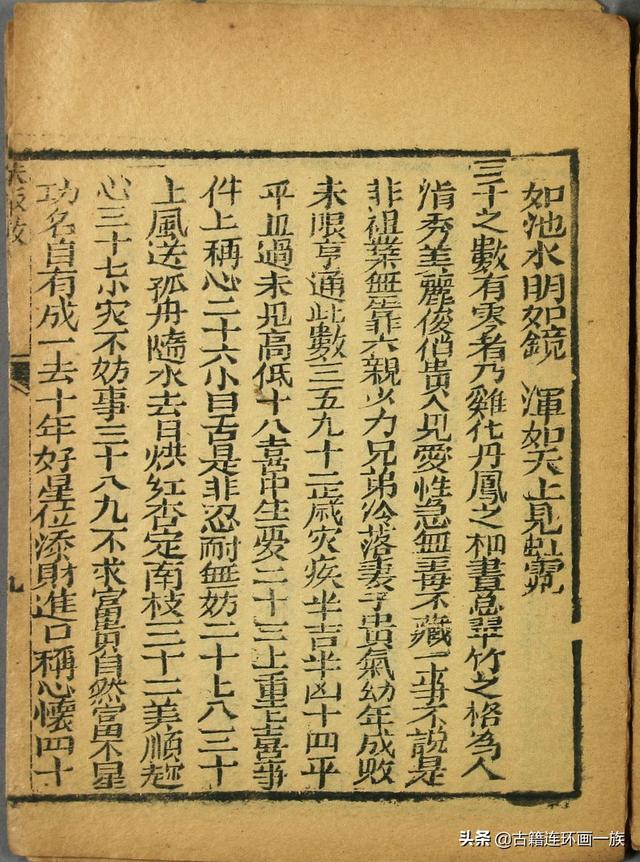 如池水明如鏡 渾如天上見虹霓
三千之數有零者乃雞化丹鳳之翠竹之格為人
清秀美麗俊俏貴人見愛性急無毒不藏一事不說是
非祖業無靠六親少力兄弟冷落妻子貴氣幼年成敗
未限亨通此數三五九十二歲灾疾半吉半凶十四平
平且過未見高低十八喜中生憂二十三上重重喜事
件上稱心二十六小口舌是非忍耐無妨二十上八三十
上風送孤舟隨水去日烘紅杏定南枝三十二美順趂
心三十七小灾不妨事三十八九不求富貴自然當不星
功名自有成一去十年好星位添財進口稱心懷四十
九
头条 @古籍连环画一族